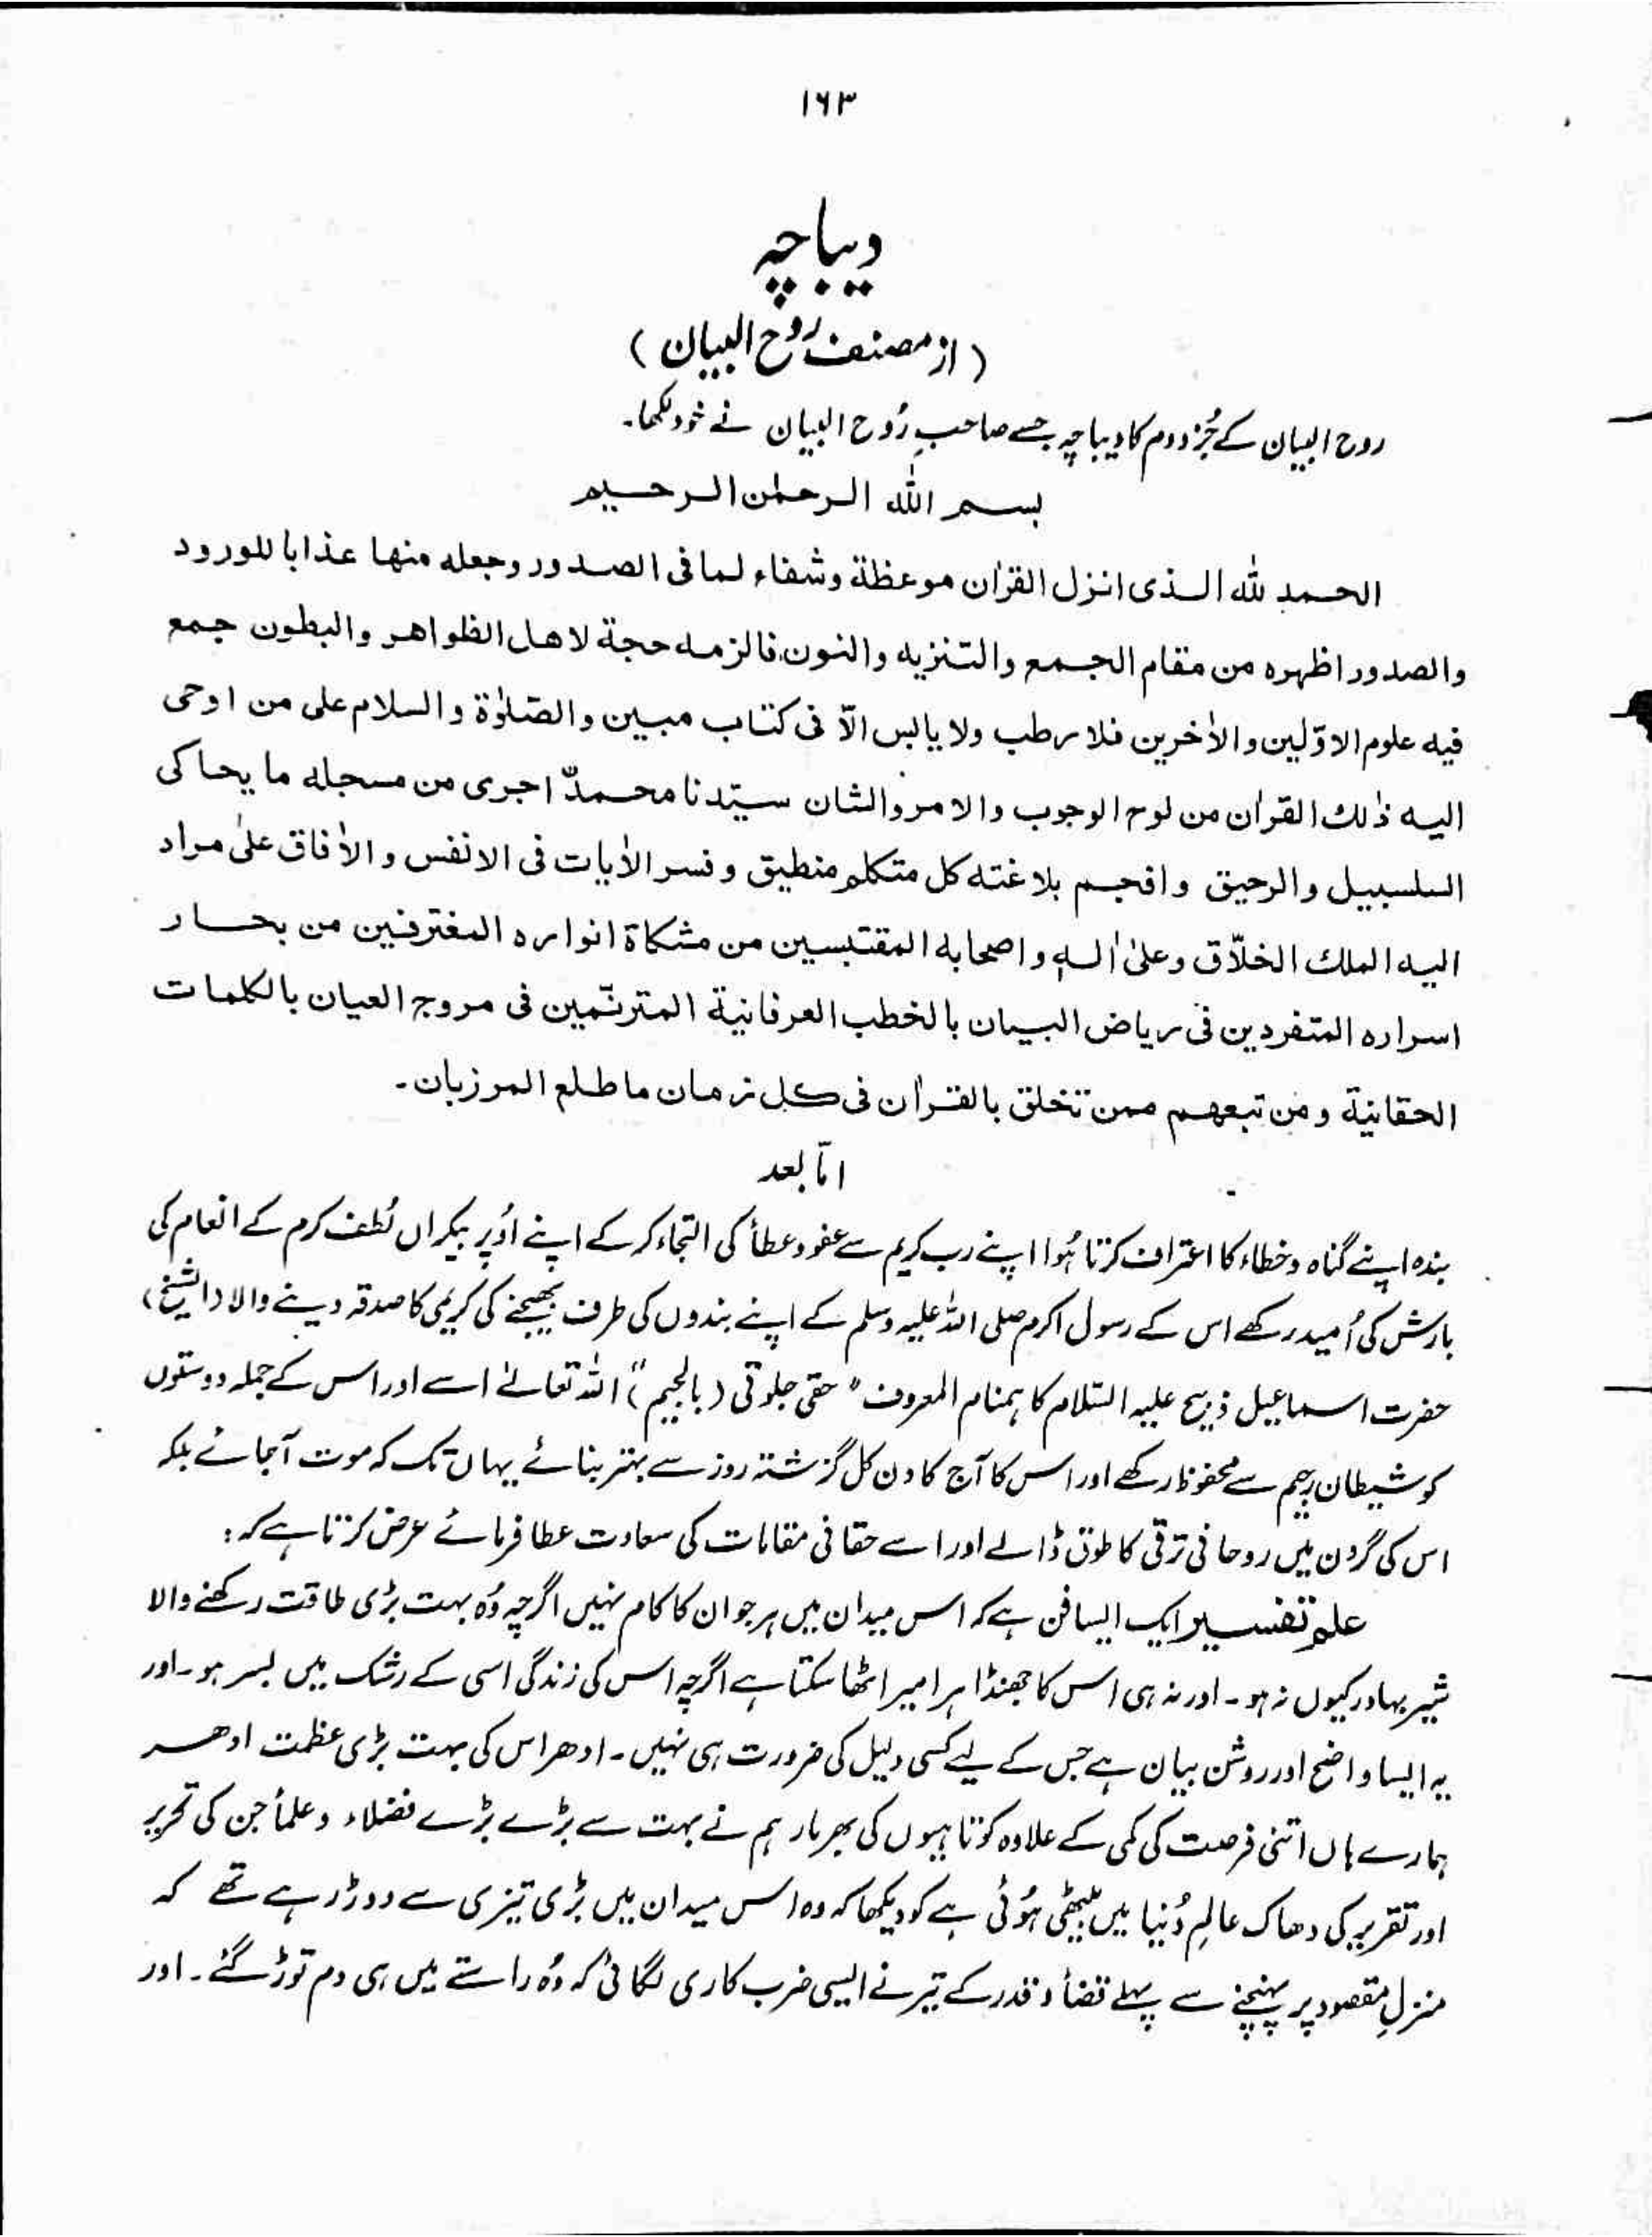 ۱۶۳
دیباچہ
(از مصنف روح البیان)
روح البیان کے جُز دوم کا دیباچہ جسے صاحبِ رُوح البیان نے خود لکھا۔
بسم اللہ الرحمٰن الرحیم
الحمد للہ الذی انزل القراٰن موعظة وشفاء لما فی الصدور وجعله منها عذابا للورود
والصدور اظهره من مقام الجمع والتنزیه والنون فالزمه حجة لاهل الظواهر والبطون جمع
فیه علوم الاوّلین والاٰخرین فلا رطب ولا یابس الاّ فی کتاب مبین والصّلوٰة والسلام علی من اوحی
الیه ذٰلك القراٰن من لوح الوجوب والامر والشان سیّدنا محمدٌ اجری من مسجله ما یحاکی
السلسبیل والرحیق وافحم بلاغته کل متکلم منطیق وفسر الاٰیات فی الانفس والاٰفاق علیٰ مراد
الیه الملك الخلّاق وعلیٰ اٰلهٖ واصحابه المقتبسین من مشکاة انواره المغترفین من بحار
اسراره المتفردین فی ریاض البیان بالخطب العرفانیة المترنّمین فی مروج العیان بالکلمات
الحقانیة ومن تبعهم ممن تخلق بالقراٰن فی کل زمان ما طلع المرزبان۔
امّا بعد
بندہ اپنے گناہ و خطاء کا اعتراف کرتا ہُوا اپنے رب کریم سے عفو و عطأ کی التجاء کر کے اپنے اُوپر بیکراں لُطف کرم کے انعام کی
بارش کی اُمید رکھے اس کے رسول اکرم صلی اللہ علیہ وسلم کے اپنے بندوں کی طرف بھیجنے کی کریمی کا صدقہ دینے والا (الشیخ)
حضرت اسماعیل ذبیح علیہ السّلام کا ہمنام المعروف "حقی جلوتی (بالجیم)" اللہ تعالےٰ اسے اور اس کے جملہ دوستوں
کو شیطان رجیم سے محفوظ رکھے اور اس کا آج کا دن کل گزشتہ روز سے بہتر بنائے یہاں تک کہ موت آجائے بلکہ
اس کی گردن میں روحانی ترقی کا طوق ڈالے اور اسے حقانی مقامات کی سعادت عطا فرمائے عرض کرتا ہے کہ:
علم تفسیر ایک ایسا فن ہے کہ اس میدان میں ہر جوان کا کام نہیں اگرچہ وُہ بہت بڑی طاقت رکھنے والا
شیر بہادر کیوں نہ ہو۔ اور نہ ہی اس کا جھنڈا ہر امیر اٹھا سکتا ہے اگرچہ اس کی زندگی اسی کے رشک میں بسر ہو۔ اور
یہ ایسا واضح اور روشن بیان ہے جس کے لیے کسی دلیل کی ضرورت ہی نہیں۔ ادھر اس کی بہت بڑی عظمت ادھر
ہمارے ہاں اتنی فرصت کی کمی کے علاوہ کوتاہیوں کی بھرمار ہم نے بہت سے بڑے بڑے فضلاء و علمأ جن کی تحریر
اور تقریر کی دھاک عالمِ دُنیا میں بیٹھی ہُوئی ہے کو دیکھا کہ وہ اس میدان میں بڑی تیزی سے دوڑ رہے تھے کہ
منزلِ مقصود پر پہنچنے سے پہلے قضأ و قدر کے تیر نے ایسی ضرب کاری لگائی کہ وُہ راستے میں ہی دم توڑ گئے۔ اور